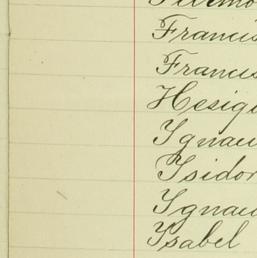 Francis
Francis
Hesiq
Ignac
Isidor
Ignac
Isabel